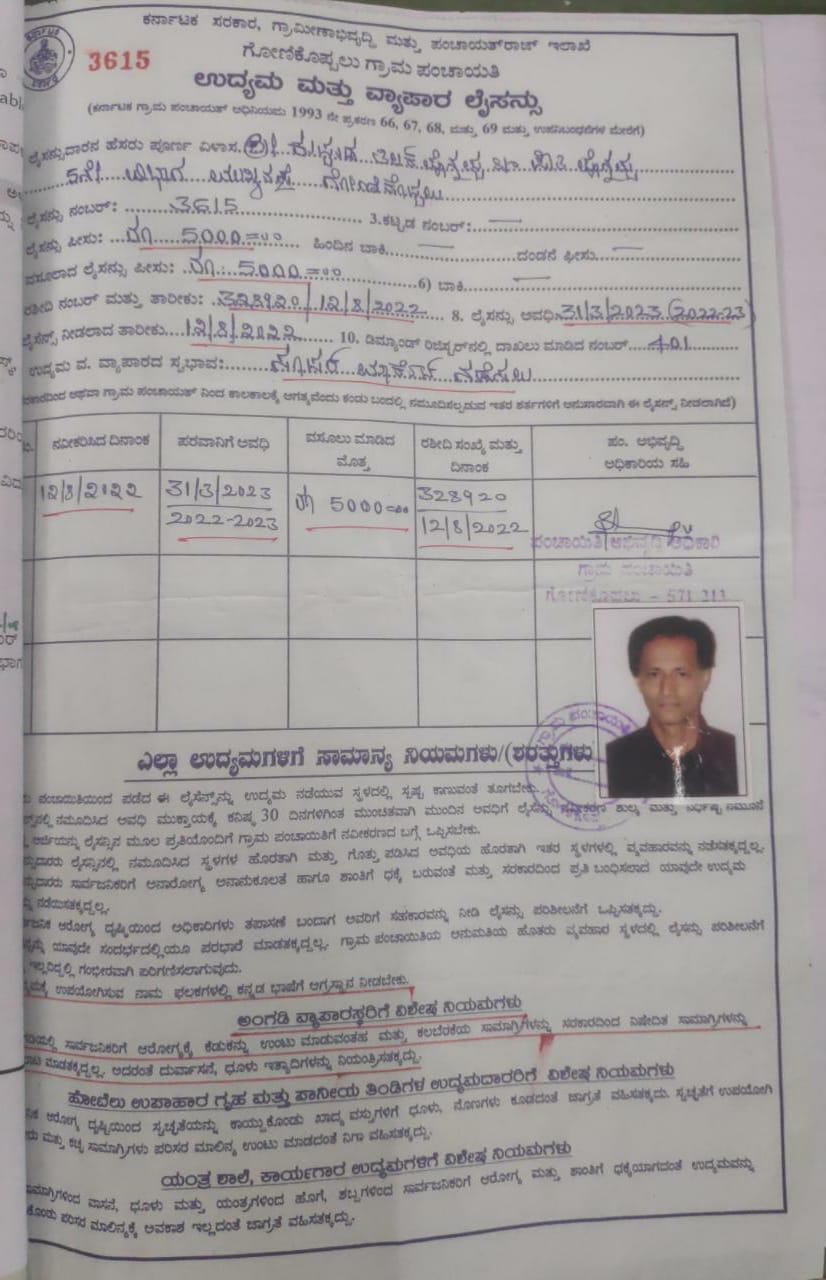 ಕರ್ನಾಟಕ ಸರಕಾರ, ಗ್ರಾಮೀಣಾಭಿವೃದ್ಧಿ ಮತ್ತು ಪಂಚಾಯತ್‌ರಾಜ್ ಇಲಾಖೆ
3615
ಗೋಣಿಕೊಪ್ಪಲು ಗ್ರಾಮ ಪಂಚಾಯತಿ
ಉದ್ಯಮ ಮತ್ತು ವ್ಯಾಪಾರ ಲೈಸನ್ಸು
(ಕರ್ನಾಟಕ ಗ್ರಾಮ ಪಂಚಾಯತ್ ಅಧಿನಿಯಮ 1993 ನೇ ಪ್ರಕರಣ 66, 67, 68, ಮತ್ತು 69 ಮತ್ತು ಉಪನಿಬಂಧನೆಗಳ ಮೇರೆಗೆ)
ಲೈಸನ್ಸುದಾರನ ಹೆಸರು ಪೂರ್ಣ ವಿಳಾಸ
5ನೇ ವಿಭಾಗ ಮುಖ್ಯರಸ್ತೆ ಗೋಣಿಕೊಪ್ಪಲು
ಲೈಸನ್ಸು ನಂಬರ್: 3615 3.ಕಟ್ಟಡ ನಂಬರ್: —
ಲೈಸನ್ಸು ಫೀಸು: ರೂ 5000=00 ಹಿಂದಿನ ಬಾಕಿ — ದಂಡನೆ ಫೀಸು —
ವಸೂಲಾದ ಲೈಸನ್ಸು ಫೀಸು: ರೂ. 5000=00 6) ಬಾಕಿ —
ರಶೀದಿ ನಂಬರ್ ಮತ್ತು ತಾರೀಕು: 328920/12/8/2022 8. ಲೈಸನ್ಸು ಅವಧಿ: 31/3/2023 (2022-23)
ಲೈಸನ್ಸು ನೀಡಲಾದ ತಾರೀಕು 12/8/2022 10. ಡಿಮ್ಯಾಂಡ್ ರಿಜಿಸ್ಟರ್‌ನಲ್ಲಿ ದಾಖಲು ಮಾಡಿದ ನಂಬರ್ 401
ಉದ್ಯಮ ವ. ವ್ಯಾಪಾರದ ಸ್ವಭಾವ: ಸೂಪರ್ ಮಾರ್ಕೆಟ್ ನಡೆಸಲು
ಅಥವಾ ಗ್ರಾಮ ಪಂಚಾಯತ್ ನಿಂದ ಕಾಲಕಾಲಕ್ಕೆ ಅಗತ್ಯವೆಂದು ಕಂಡು ಬಂದಲ್ಲಿ ನಮೂದಿಸಲ್ಪಡುವ ಇತರ ಶರ್ತಗಳಿಗೆ ಅನುಸಾರವಾಗಿ ಈ ಲೈಸನ್ಸ್ ನೀಡಲಾಗಿದೆ)
ನವೀಕರಿಸಿದ ದಿನಾಂಕ ಪರವಾನಿಗೆ ಅವಧಿ ವಸೂಲು ಮಾಡಿದ ಮೊತ್ತ ರಶೀದಿ ಸಂಖ್ಯೆ ಮತ್ತು ದಿನಾಂಕ ಪಂ. ಅಭಿವೃದ್ಧಿ ಅಧಿಕಾರಿಯ ಸಹಿ
12/8/2022 31/3/2023 ರೂ 5000=00 328920
2022-2023 12/8/2022
ಪಂಚಾಯಿತಿ ಅಭಿವೃದ್ಧಿ ಅಧಿಕಾರಿ
ಗ್ರಾಮ ಪಂಚಾಯತಿ
ಗೋಣಿಕೊಪ್ಪಲು - 571 213
ಎಲ್ಲಾ ಉದ್ಯಮಗಳಿಗೆ ಸಾಮಾನ್ಯ ನಿಯಮಗಳು/(ಶರತ್ತುಗಳು
ಪಂಚಾಯಿತಿಯಿಂದ ಪಡೆದ ಈ ಲೈಸೆನ್ಸ್‌ನ್ನು ಉದ್ಯಮ ನಡೆಯುವ ಸ್ಥಳದಲ್ಲಿ ಸ್ಪಷ್ಟ ಕಾಣುವಂತೆ ತೂಗಬೇಕು.
ನಮೂದಿಸಿದ ಅವಧಿ ಮುಕ್ತಾಯಕ್ಕೆ ಕನಿಷ್ಠ 30 ದಿನಗಳಿಗಿಂತ ಮುಂಚಿತವಾಗಿ ಮುಂದಿನ ಅವಧಿಗೆ ಲೈಸೆನ್ಸು ನವೀಕರಣ ಶುಲ್ಕ ಮತ್ತು ನಿರ್ಧಿಷ್ಟ ನಮೂನೆ
ಅರ್ಜಿಯನ್ನು ಲೈಸನ್ಸಿನ ಮೂಲ ಪ್ರತಿಯೊಂದಿಗೆ ಗ್ರಾಮ ಪಂಚಾಯಿತಿಗೆ ನವೀಕರಣದ ಬಗ್ಗೆ ಒಪ್ಪಿಸಬೇಕು.
ಲೈಸ್ಸುನಲ್ಲಿ ನಮೂದಿಸಿದ ಸ್ಥಳಗಳ ಹೊರತಾಗಿ ಮತ್ತು ಗೊತ್ತು ಪಡಿಸಿದ ಅವಧಿಯ ಹೊರತಾಗಿ ಇತರ ಸ್ಥಳಗಳಲ್ಲಿ ವ್ಯವಹಾರವನ್ನು ನಡೆಸತಕ್ಕದ್ದಲ್ಲ.
ಸಾರ್ವಜನಿಕರಿಗೆ ಅನಾರೋಗ್ಯ ಅನಾನುಕೂಲತೆ ಹಾಗೂ ಶಾಂತಿಗೆ ಧಕ್ಕೆ ಬರುವಂತೆ ಮತ್ತು ಸರಕಾರದಿಂದ ಪ್ರತಿ ಬಂಧಿಸಲಾದ ಯಾವುದೇ ಉದ್ಯಮ
ನಡೆಯಿಸತಕ್ಕದ್ದಲ್ಲ.
ಆರೋಗ್ಯ ದೃಷ್ಠಿಯಿಂದ ಅಧಿಕಾರಿಗಳು ತಪಾಸಣೆ ಬಂದಾಗ ಅವರಿಗೆ ಸಹಕಾರವನ್ನು ನೀಡಿ ಲೈಸನ್ಸು ಪರಿಶೀಲನೆಗೆ ಒಪ್ಪಿಸತಕ್ಕದ್ದು.
ಯಾವುದೇ ಸಂದರ್ಭದಲ್ಲಿಯೂ ಪರಭಾರೆ ಮಾಡತಕ್ಕದ್ದಲ್ಲ. ಗ್ರಾಮ ಪಂಚಾಯಿತಿಯ ಅನುಮತಿಯ ಹೊರತು ವ್ಯವಹಾರ ಸ್ಥಳದಲ್ಲಿ ಲೈಸನ್ಸು ಪರಿಶೀಲನೆಗೆ
ಇಲ್ಲದಿದ್ದಲ್ಲಿ ಗಂಭೀರವಾಗಿ ಪರಿಗಣಿಸಲಾಗುವುದು.
ಉಪಯೋಗಿಸುವ ನಾಮ ಫಲಕಗಳಲ್ಲಿ ಕನ್ನಡ ಭಾಷೆಗೆ ಅಗ್ರಸ್ಥಾನ ನೀಡಬೇಕು.
ಅಂಗಡಿ ವ್ಯಾಪಾರಸ್ಥರಿಗೆ ವಿಶೇಷ ನಿಯಮಗಳು
ಸಾರ್ವಜನಿಕರಿಗೆ ಆರೋಗ್ಯಕ್ಕೆ ಕೆಡುಕನ್ನು ಉಂಟು ಮಾಡುವಂತಹ ಮತ್ತು ಕಲಬೆರಕೆಯ ಸಾಮಾಗ್ರಿಗಳನ್ನು ಸರಕಾರದಿಂದ ನಿಷೇದಿತ ಸಾಮಾಗ್ರಿಗಳನ್ನು
ಮಾಡತಕ್ಕದ್ದಲ್ಲ. ಅದರಂತೆ ದುರ್ವಾಸನೆ, ಧೂಳು ಇತ್ಯಾದಿಗಳನ್ನು ನಿಯಂತ್ರಿಸತಕ್ಕದ್ದು.
ಹೋಟೆಲು ಉಪಾಹಾರ ಗೃಹ ಮತ್ತು ಪಾನೀಯ ತಿಂಡಿಗಳ ಉದ್ಯಮದಾರರಿಗೆ ವಿಶೇಷ ನಿಯಮಗಳು
ಆರೋಗ್ಯ ದೃಷ್ಠಿಯಿಂದ ಸ್ವಚ್ಛತೆಯನ್ನು ಕಾಯ್ದುಕೊಂಡು ಖಾದ್ಯ ವಸ್ತುಗಳಿಗೆ ಧೂಳು, ನೊಣಗಳು ಕೂಡದಂತೆ ಜಾಗ್ರತೆ ವಹಿಸತಕ್ಕದು. ಸ್ವಚ್ಛತೆಗೆ ಉಪಯೋಗಿ
ಮತ್ತು ಕಚ್ಛ ಸಾಮಾಗ್ರಿಗಳು ಪರಿಸರ ಮಾಲಿನ್ಯ ಉಂಟು ಮಾಡದಂತೆ ನಿಗಾ ವಹಿಸತಕ್ಕದ್ದು.
ಯಂತ್ರ ಶಾಲೆ, ಕಾರ್ಯಗಾರ ಉದ್ಯಮಗಳಿಗೆ ವಿಶೇಷ ನಿಯಮಗಳು
ವಾಸನೆ, ಧೂಳು ಮತ್ತು ಯಂತ್ರಗಳಿಂದ ಹೊಗೆ, ಶಬ್ದಗಳಿಂದ ಸಾರ್ವಜನಿಕರಿಗೆ ಆರೋಗ್ಯ ಮತ್ತು ಶಾಂತಿಗೆ ಧಕ್ಕೆಯಾಗದಂತೆ ಉದ್ಯಮವನ್ನು
ಪರಿಸರ ಮಾಲಿನ್ಯಕ್ಕೆ ಅವಕಾಶ ಇಲ್ಲದಂತೆ ಜಾಗ್ರತೆ ವಹಿಸತಕ್ಕದ್ದು.